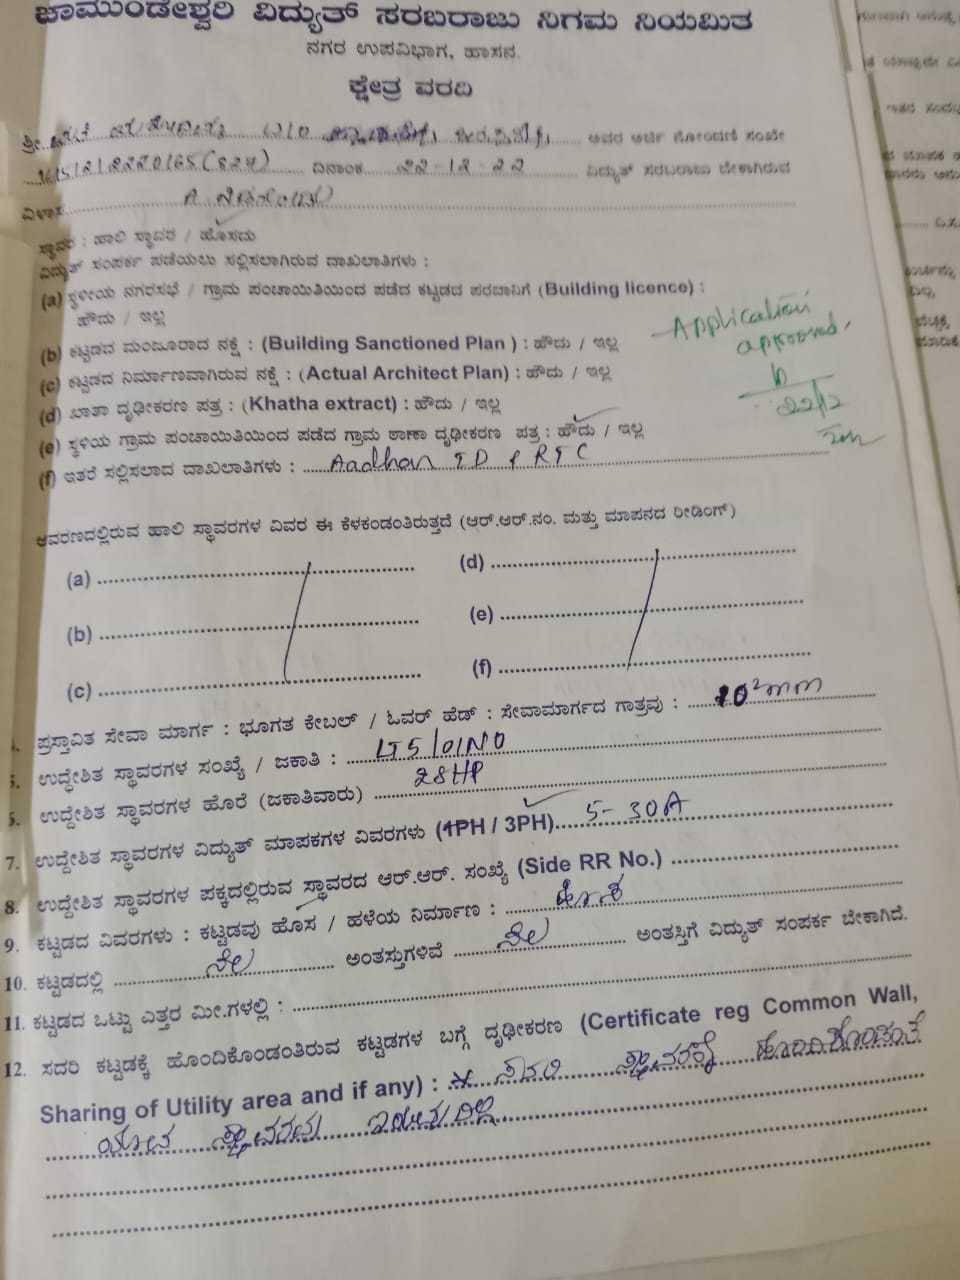 ಚಾಮುಂಡೇಶ್ವರಿ ವಿದ್ಯುತ್ ಸರಬರಾಜು ನಿಗಮ ನಿಯಮಿತ
ನಗರ ಉಪವಿಭಾಗ, ಹಾಸನ.
ಕ್ಷೇತ್ರ ವರದಿ
ಶ್ರೀ. ಅವರ ಅರ್ಜಿ ನೋಂದಣಿ ಸಂಖ್ಯೆ
ದಿನಾಂಕ 22-12-22 ವಿದ್ಯುತ್ ಸರಬರಾಜು ಬೇಕಾಗಿರುವ
ವಿಳಾಸ
ಸ್ಥಾವರ : ಹಾಲಿ ಸ್ಥಾವರ / ಹೊಸದು
ವಿದ್ಯುತ್ ಸಂಪರ್ಕ ಪಡೆಯಲು ಸಲ್ಲಿಸಲಾಗಿರುವ ದಾಖಲಾತಿಗಳು :
(a) ಸ್ಥಳೀಯ ನಗರಸಭೆ / ಗ್ರಾಮ ಪಂಚಾಯಿತಿಯಿಂದ ಪಡೆದ ಕಟ್ಟಡದ ಪರವಾನಿಗೆ (Building licence) :
ಹೌದು / ಇಲ್ಲ
(b) ಕಟ್ಟಡದ ಮಂಜೂರಾದ ನಕ್ಷೆ : (Building Sanctioned Plan ) : ಹೌದು / ಇಲ್ಲ
(c) ಕಟ್ಟಡದ ನಿರ್ಮಾಣವಾಗಿರುವ ನಕ್ಷೆ : (Actual Architect Plan) : ಹೌದು / ಇಲ್ಲ
(d) ಖಾತಾ ದೃಢೀಕರಣ ಪತ್ರ : (Khatha extract) : ಹೌದು / ಇಲ್ಲ
(e) ಸ್ಥಳಿಯ ಗ್ರಾಮ ಪಂಚಾಯಿತಿಯಿಂದ ಪಡೆದ ಗ್ರಾಮ ಠಾಣಾ ದೃಢೀಕರಣ ಪತ್ರ : ಹೌದು / ಇಲ್ಲ
(f) ಇತರೆ ಸಲ್ಲಿಸಲಾದ ದಾಖಲಾತಿಗಳು : Aadhar ID & RTC
Application
approved,
22/12
ಆವರಣದಲ್ಲಿರುವ ಹಾಲಿ ಸ್ಥಾವರಗಳ ವಿವರ ಈ ಕೆಳಕಂಡಂತಿರುತ್ತದೆ (ಆರ್.ಆರ್.ನಂ. ಮತ್ತು ಮಾಪನದ ರೀಡಿಂಗ್)
(a) (d)
(b) (e)
(c) (f)
ಪ್ರಸ್ತಾವಿತ ಸೇವಾ ಮಾರ್ಗ : ಭೂಗತ ಕೇಬಲ್ / ಓವರ್ ಹೆಡ್ : ಸೇವಾಮಾರ್ಗದ ಗಾತ್ರವು : 10²mm
ಉದ್ದೇಶಿತ ಸ್ಥಾವರಗಳ ಸಂಖ್ಯೆ / ಜಕಾತಿ : LT5/01NO
ಉದ್ದೇಶಿತ ಸ್ಥಾವರಗಳ ಹೊರೆ (ಜಕಾತಿವಾರು) 28HP
7. ಉದ್ದೇಶಿತ ಸ್ಥಾವರಗಳ ವಿದ್ಯುತ್ ಮಾಪಕಗಳ ವಿವರಗಳು (1PH / 3PH) 5-30A
8. ಉದ್ದೇಶಿತ ಸ್ಥಾವರಗಳ ಪಕ್ಕದಲ್ಲಿರುವ ಸ್ಥಾವರದ ಆರ್.ಆರ್. ಸಂಖ್ಯೆ (Side RR No.)
9. ಕಟ್ಟಡದ ವಿವರಗಳು : ಕಟ್ಟಡವು ಹೊಸ / ಹಳೆಯ ನಿರ್ಮಾಣ : ಹೊಸ
10. ಕಟ್ಟಡದಲ್ಲಿ ನೆಲ ಅಂತಸ್ತುಗಳಿವೆ ನೆಲ ಅಂತಸ್ತಿಗೆ ವಿದ್ಯುತ್ ಸಂಪರ್ಕ ಬೇಕಾಗಿದೆ.
11. ಕಟ್ಟಡದ ಒಟ್ಟು ಎತ್ತರ ಮೀ.ಗಳಲ್ಲಿ :
12. ಸದರಿ ಕಟ್ಟಡಕ್ಕೆ ಹೊಂದಿಕೊಂಡಂತಿರುವ ಕಟ್ಟಡಗಳ ಬಗ್ಗೆ ದೃಢೀಕರಣ (Certificate reg Common Wall,
Sharing of Utility area and if any) : ಸದರಿ ಸ್ಥಾವರಕ್ಕೆ ಹೊಂದಿಕೊಂಡಂತೆ
ಯಾವ ಸ್ಥಾವರವು ಇರುವುದಿಲ್ಲ